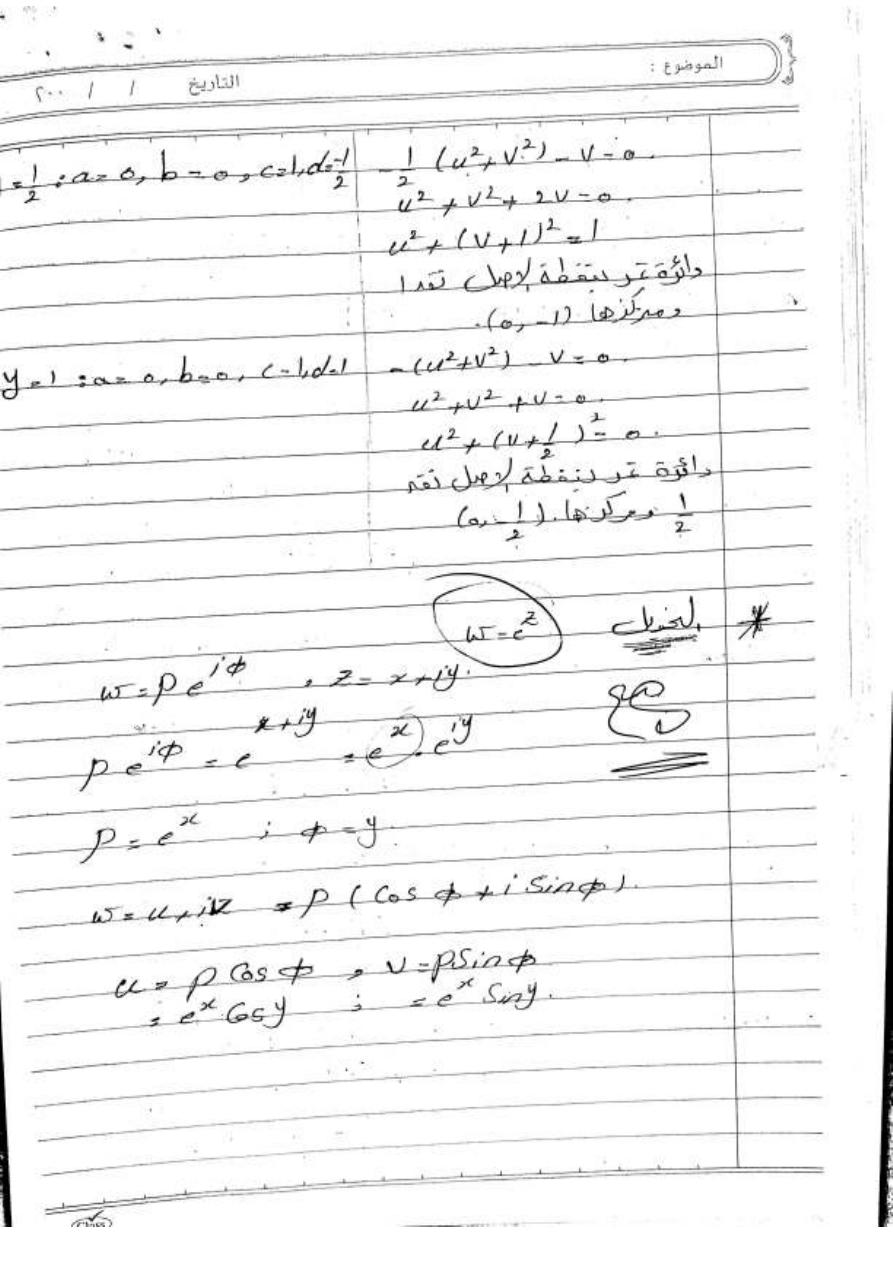 الموضوع :
التاريخ / / ٢٠٠
= 1/2 : a = 0, b = 0, c = 1, d = -1/2
- 1/2 (u² + v²) - v = 0.
u² + v² + 2v = 0.
u² + (v + 1)² = 1
دائرة تمر بنقطة الاصل نقـ 1
ومركزها (0, -1).
y = 1 : a = 0, b = 0, c = 1, d = -1
- (u² + v²) - v = 0.
u² + v² + v = 0.
u² + (v + 1/2)² = 0.
دائرة تمر بنقطة الاصل نقـ
1/2 ومركزها. (0, -1/2)
* التحويل w = e^z
w = ρ e^{iφ} , z = x + iy.
ρ e^{iφ} = e^{x+iy} = e^x . e^{iy}
ρ = e^x ; φ = y.
w = u + iv = ρ (Cos φ + i Sin φ).
u = ρ Cos φ , v = ρ Sin φ
= e^x Cos y ; = e^x Sin y.
Class